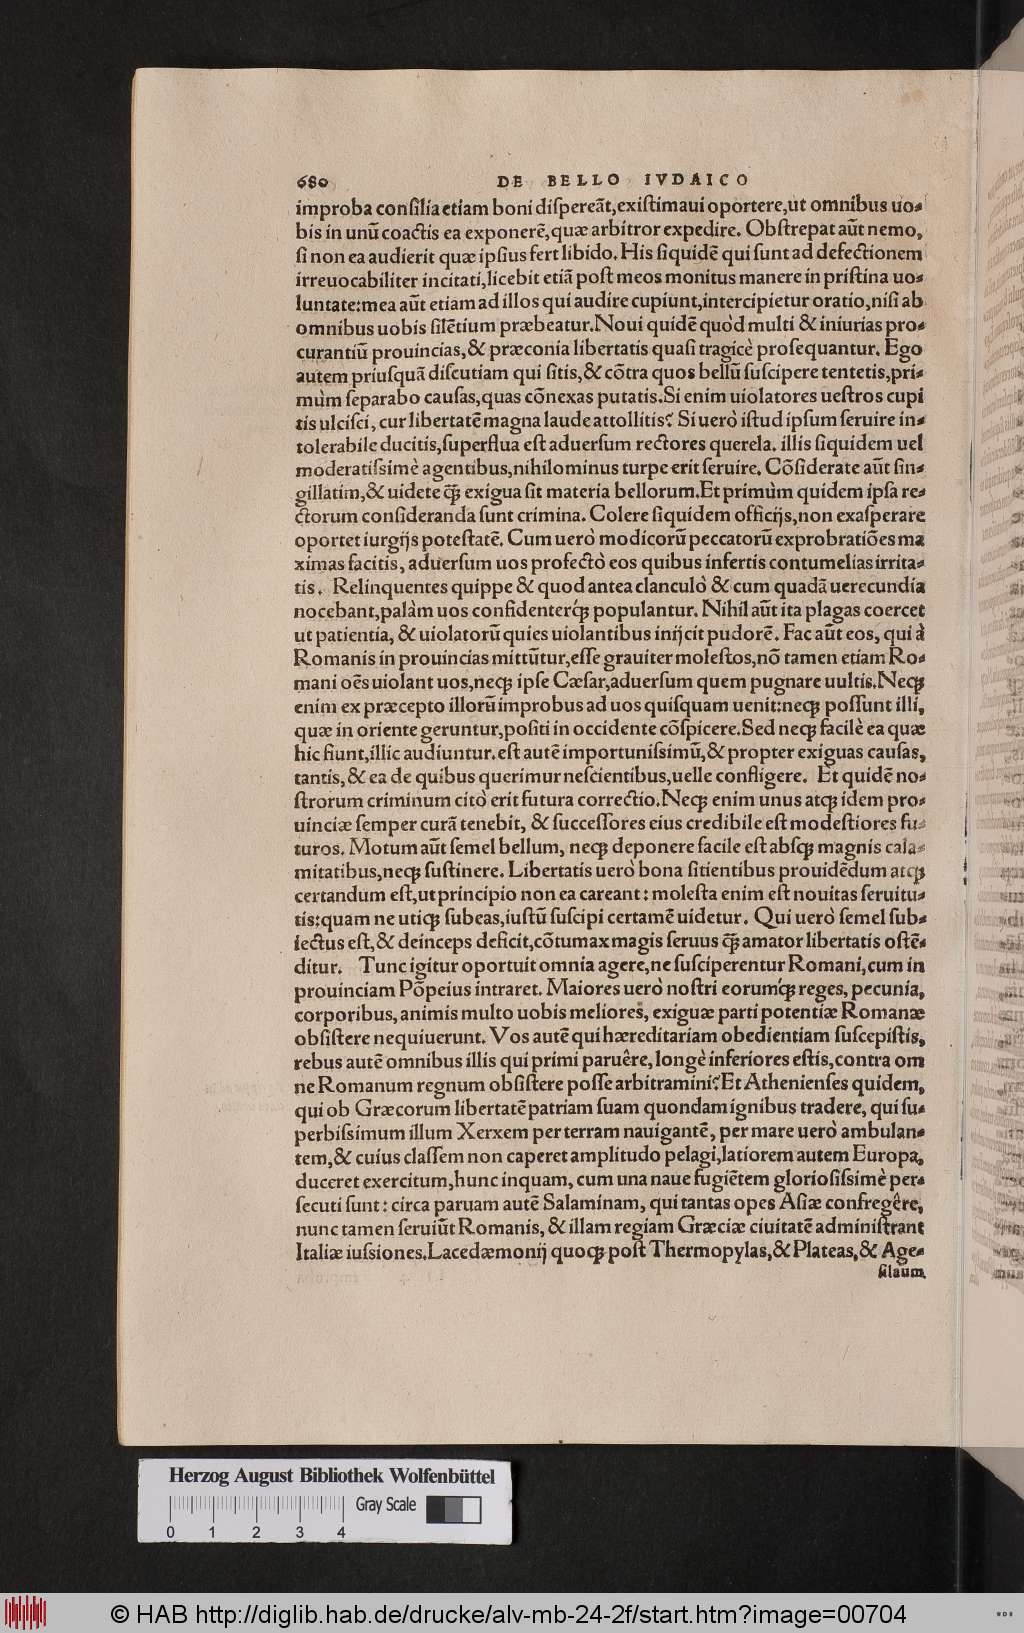 680 DE BELLO IVDAICO
improba consilia etiam boni dispereāt, existimaui oportere, ut omnibus uo-
bis in unū coactis ea exponerē, quæ arbitror expedire. Obstrepat aūt nemo,
si non ea audierit quæ ipsius fert libido. His siquidē qui sunt ad defectionem
irreuocabiliter incitati, licebit etiā post meos monitus manere in pristina uo-
luntate: mea aūt etiam ad illos qui audire cupiunt, intercipietur oratio, nisi ab
omnibus uobis silētium præbeatur. Noui quidē quòd multi & iniurias pro-
curantiū prouincias, & præconia libertatis quasi tragicè prosequantur. Ego
autem priusquā discutiam qui sitis, & cōtra quos bellū suscipere tentetis, pri-
mùm separabo causas, quas cōnexas putatis. Si enim uiolatores uestros cupi
tis ulcisci, cur libertatē magna laude attollitis? Si uerò istud ipsum seruire in-
tolerabile ducitis, superflua est aduersum rectores querela. illis siquidem uel
moderatissimè agentibus, nihilominus turpe erit seruire. Cōsiderate aūt sin-
gillatim, & uidete q̃ꝫ exigua sit materia bellorum. Et primùm quidem ipsa re-
ctorum consideranda sunt crimina. Colere siquidem officijs, non exasperare
oportet iurgijs potestatē. Cum uerò modicorū peccatorū exprobratiōes ma
ximas facitis, aduersum uos profectò eos quibus infertis contumelias irrita-
tis. Relinquentes quippe & quod antea clanculò & cum quadā uerecundia
nocebant, palàm uos confidenterq́ꝫ populantur. Nihil aūt ita plagas coercet
ut patientia, & uiolatorū quies uiolantibus inijcit pudorē. Fac aūt eos, qui à
Romanis in prouincias mittūtur, esse grauiter molestos, nō tamen etiam Ro-
mani oēs uiolant uos, neqꝫ ipse Cæsar, aduersum quem pugnare uultis. Neqꝫ
enim ex præcepto illorū improbus ad uos quisquam uenit: neqꝫ possunt illi,
quæ in oriente geruntur, positi in occidente cōspicere. Sed neqꝫ facilè ea quæ
hic fiunt, illic audiuntur. est autē importunissimū, & propter exiguas causas,
tantis, & ea de quibus querimur nescientibus, uelle confligere. Et quidē no-
strorum criminum citò erit futura correctio. Neqꝫ enim unus atqꝫ idem pro-
uinciæ semper curā tenebit, & successores eius credibile est modestiores fu-
turos. Motum aūt semel bellum, neqꝫ deponere facile est absqꝫ magnis cala-
mitatibus, neqꝫ sustinere. Libertatis uerò bona sitientibus prouidēdum atqꝫ
certandum est, ut principio non ea careant: molesta enim est nouitas seruitu-
tis: quam ne utiqꝫ subeas, iustū suscipi certamē uidetur. Qui uerò semel sub-
iectus est, & deinceps deficit, cōtumax magis seruus q̃ꝫ amator libertatis ostē-
ditur. Tunc igitur oportuit omnia agere, ne susciperentur Romani, cum in
prouinciam Pōpeius intraret. Maiores uerò nostri eorumq́ꝫ reges, pecunia,
corporibus, animis multo uobis meliores, exiguæ parti potentiæ Romanæ
obsistere nequiuerunt. Vos autē qui hæreditariam obedientiam suscepistis,
rebus autē omnibus illis qui primi paruêre, longè inferiores estis, contra om
ne Romanum regnum obsistere posse arbitramini? Et Athenienses quidem,
qui ob Græcorum libertatē patriam suam quondam ignibus tradere, qui su-
perbissimum illum Xerxem per terram nauigantē, per mare uerò ambulan-
tem, & cuius classem non caperet amplitudo pelagi, latiorem autem Europa,
duceret exercitum, hunc inquam, cum una naue fugiētem gloriosissimè per-
secuti sunt: circa paruam autē Salaminam, qui tantas opes Asiæ confregêre,
nunc tamen seruiūt Romanis, & illam regiam Græciæ ciuitatē administrant
Italiæ iussiones. Lacedæmonij quoqꝫ post Thermopylas, & Plateas, & Age-
silaum
Herzog August Bibliothek Wolfenbüttel
Gray Scale
0 1 2 3 4
© HAB http://diglib.hab.de/drucke/alv-mb-24-2f/start.htm?image=00704